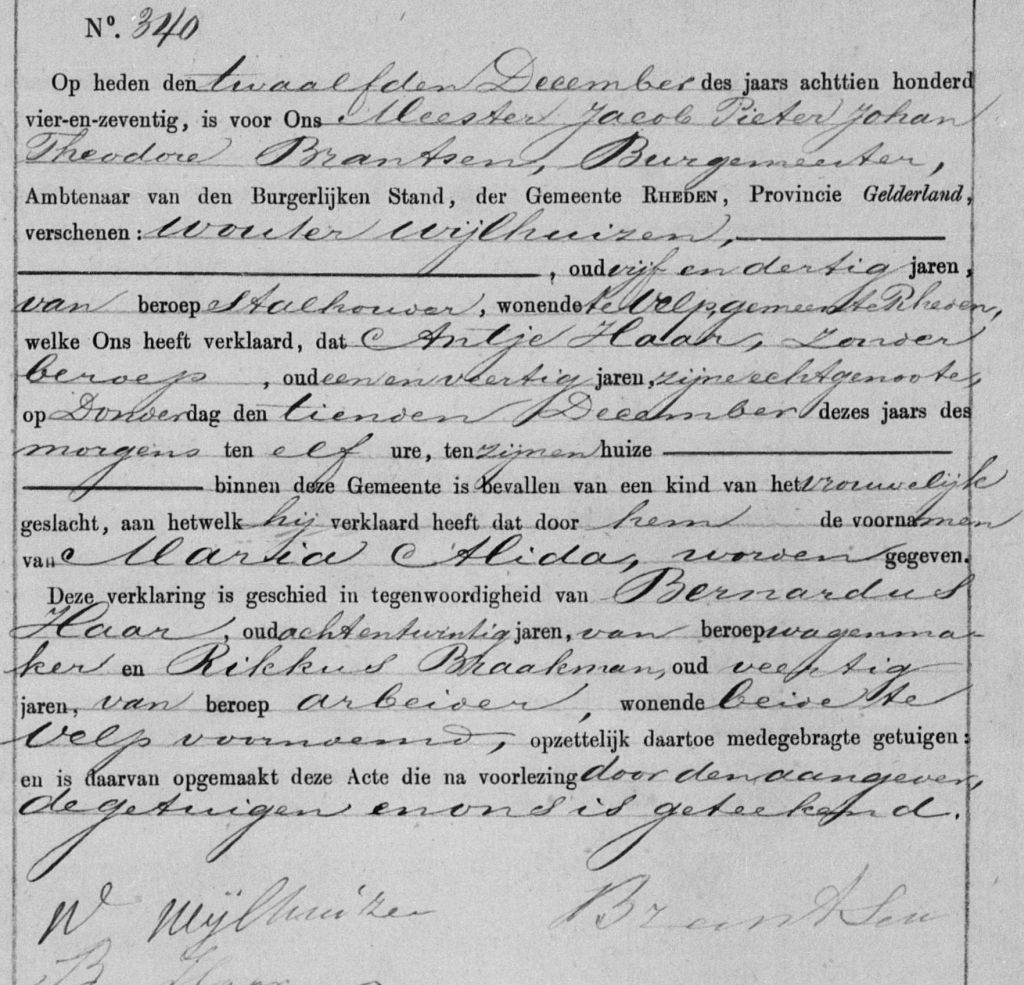 Nº. 340
Op heden den twaalfden December des jaars achttien honderd
vier-en-zeventig, is voor Ons Meester Jacob Pieter Johan
Theodore Brantsen, Burgemeester,
Ambtenaar van den Burgerlijken Stand, der Gemeente RHEDEN, Provincie Gelderland,
verschenen: Wouter Wijlhuizen,
, oud vijf en dertig jaren,
van beroep stalhouder, wonende te Velp, gemeente Rheden,
welke Ons heeft verklaard, dat Antje Haar, zonder
beroep, oud een en veertig jaren, zijne echtgenoote,
op Donderdag den tienden December dezes jaars des
morgens ten elf ure, ten zijnen huize
binnen deze Gemeente is bevallen van een kind van het vrouwelijk
geslacht, aan hetwelk hij verklaard heeft dat door hem de voornamen
van Maria Alida, worden gegeven.
Deze verklaring is geschied in tegenwoordigheid van Bernardus
Haar, oud acht en twintig jaren, van beroep wagenma-
ker en Rikkus Braakman, oud veertig
jaren, van beroep arbeider, wonende beide te
Velp voornoemd, opzettelijk daartoe medegebragte getuigen:
en is daarvan opgemaakt deze Acte die na voorlezing door den aangever,
de getuigen en ons is geteekend.
W Wijlhuizen Brantsen
B Haar